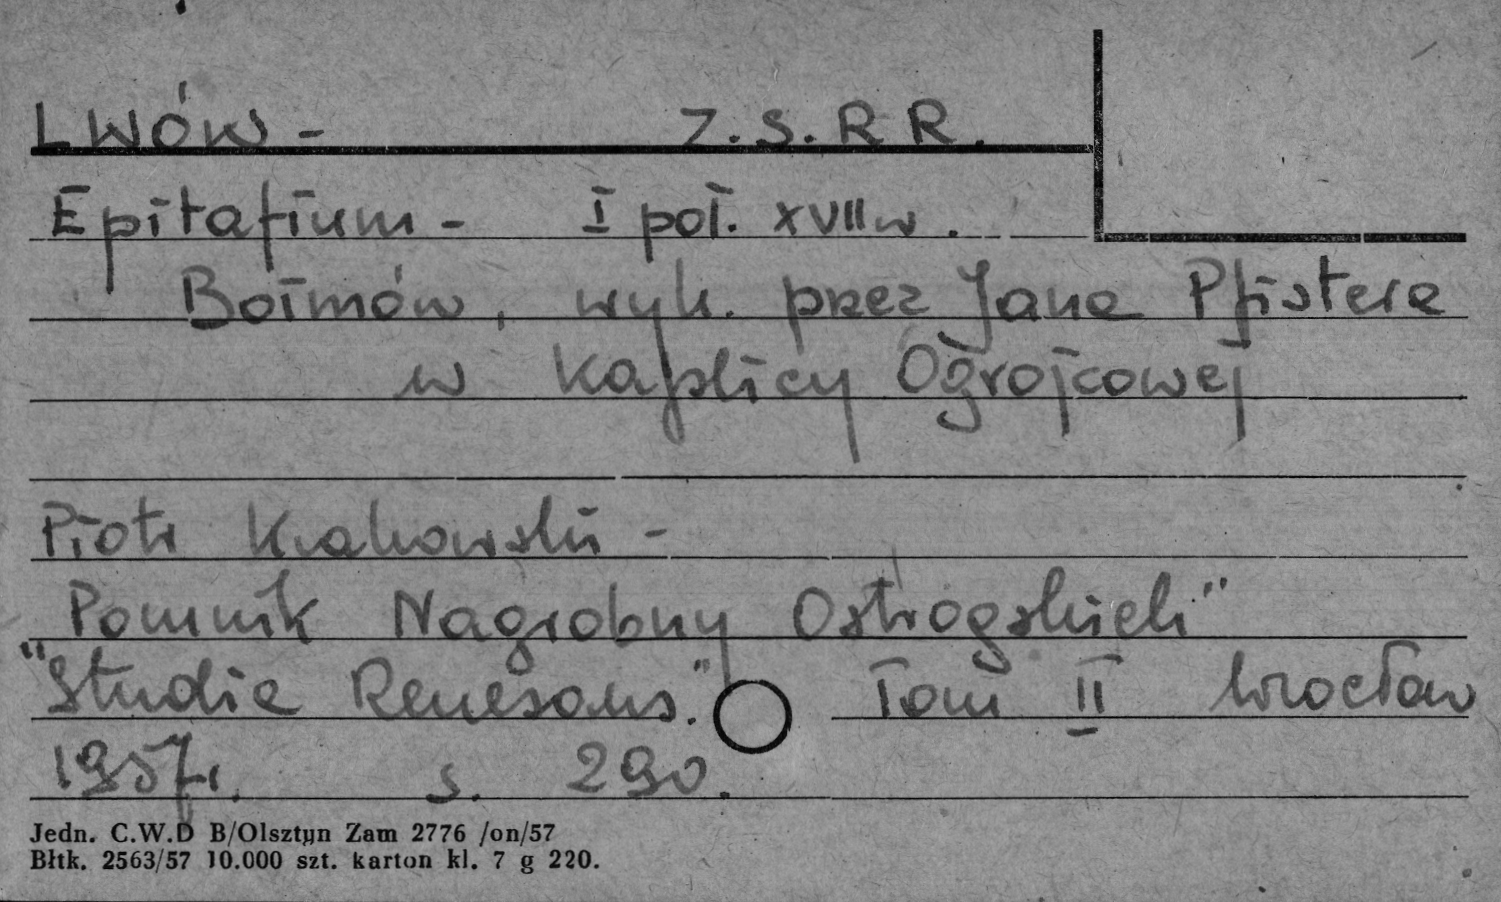 LWÓW - Z.S.R R.
Epitafium - I poł. XVII w.
Boimów, wyk. przez Jana Pfistera
w Kaplicy Ogrojcowej
Piotr Krakowski -
Pomnik Nagrobny Ostrogskich"
"Studia Renesans." Tom II Wrocław
1957r. s. 290.
Jedn. C.W.D B/Olsztyn Zam 2776 /on/57
Błtk. 2563/57 10.000 szt. karton kl. 7 g 220.